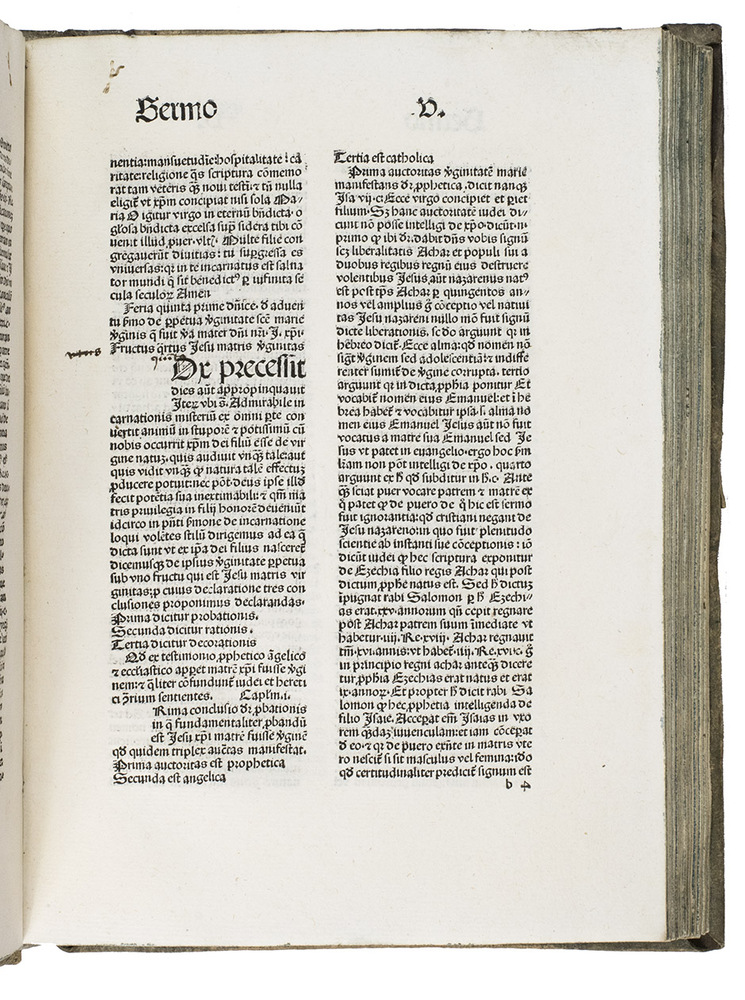 Sermo V.
nentia: mansuetudīe: hospitalitate ⁊ cā
ritate: religione q̄s scriptura cōmemo
rat tam veteris q̄ȝ noui testī: ⁊ tū nulla
eligit̄ vt xp̄m concipiat nisi sola Ma-
ria O igitur virgo in eternū bn̄dicta. o
glosa bn̄dicta excelsa sup̄ sidera tibi cō
uenit illud ꝓuer. vlt. Multe filie con
gregauerūt diuitias: tu supgressa es
vniuersas: qr in te incarnatus est salua
tor mundi q̄ sit benedictꝰ ꝑ infinita se
cula seculoꝝ Amen
Feria quinta prime dn̄ice. đ aduen
tu ẜmo de ꝑpetua v̄ginitate scē marie
v̄ginis q̄ fuit v̄a mater dn̄i nr̄i. J. xp̄i.
Fructus q̄rtus Jesu matris v̄ginitas
Ox precessīt
dies aūt appropinquauit
Jteꝝ vbi s̄. Admirabile in
carnationis misteriū ex omni ꝑte con
uertit animū in stuporē ⁊ potissimū cū
nobis occurrit xp̄m dei filiū esse de vir
gine natuȝ. quis audiuit vnq̄ȝ tale aut
quis vidit vnq̄ȝ ꝙ natura talē effectuȝ
ꝓducere potuit: nec pōt. deus ipse illđ
fecit potētia sua inextimabili: ⁊ qm̄ ma
tris priuilegia in filij honorē deueniūt
idcirco in pn̄ti ẜmone de incarnatione
loqui volētes stilū dirigemus ad ea q̄
dicta sunt vt ex ip̄a dei filius nasceret̄
dicemusq̄ȝ de ipsius v̄ginitate ꝑpetua
sub vno fructu qui est Jesu matris vir
ginitas: ꝓ cuius declaratione tres con
clusiones proponimus declarandas.
Prima dicitur probationis.
Secunda dicitur rationis.
Tertia dicitur decorationis
Qđ ex testimonio ꝓphetico āgelico
⁊ ecclīastico apꝑet matrē xp̄i fuisse v̄gi
nem: ⁊ q̄liter cōfundunt̄ iudei et hereti
ci ꝯ̄rium sentientes. Caplm̄. i.
Rima conclusio dr̄. ꝓbationis
in q̄ fundamentaliter ꝓbandū
est Jesu xp̄i matrē fuisse v̄ginē
qđ quidem triplex auc̄tas manifestat.
Prima auctoritas est prophetica
Secunda est angelica
Tertia est catholica
Prima auctoritas v̄ginitatē marie
manifestans dr̄. ꝓphetica. dicit nanq̄ȝ
Jsa vij. c. Ecce virgo concipiet et ꝑiet
filium. Sȝ hanc auctoritatē iudei di-
cunt nō posse intelligi de xp̄o. dicūt. n.
primo ꝙ ibi dr̄. dabit dn̄s vobis signū
scȝ liberalitatis Achaȝ et populi sui a
duobus regibus regnū eius destruere
volentibus Jesus aūt naȝarenus natꝰ
est post tp̄s Achaȝ ꝑ quingentos an-
nos vel amplius g̊ cōceptio vel natiui
tas Jesu naȝareni nullo mō fuit signū
dicte liberationis. secđo arguunt qꝛ in
hebreo dicit̄. Ecce alma: qđ nomen nō
sigt̄ v̄ginem sed adolescentiā: ⁊ indiffe
renter sumit̄ de v̄gine corrupta. tertio
arguunt qꝛ in dicta ꝓphīa ponitur Et
vocabit̄ nomen eius Emanuel: et ī he
brea habet̄ ⁊ vocabitur ipsa. s. alma no
men eius Emanuel Jesus aūt nō fuit
vocatus a matre sua Emanuel sed Je
sus vt patet in euangelio. ergo hoc ẜm
lr̄am non pōt intelligi de xp̄o. quarto
arguunt ex ħ qđ subditur in ħ. c. Ante
q̄ȝ sciat puer vocare patrem ⁊ matrē ex
q̄ patet ꝙ de puero de q̄ hic est sermo
fuit ignorantia: qđ cristiani negant de
Jesu naȝareno: in quo fuit plenitudo
scientie ab instanti sue cōceptionis: iō
dicūt iudei ꝙ hec scriptura exponitur
de Eȝechia filio regis Achaȝ qui post
dictum ꝓphē natus est. Sed ħ dictuȝ
īpugnat rabi Salomon ꝑ ħ Eȝechi-
as erat. xxv. annorum qn̄ cepit regnare
post Achaȝ patrem suum īmediate vt
habetur. iiij. Re. xviij. Achaȝ regnauit
tm̄. xvi. annis: vt habet̄. iiij. Re. xvi. c. g̊
in principio regni achaȝ anteq̄ȝ dicere
tur ꝓphīa Eȝechias erat natus et erat
ix. annoꝝ. Et propter ħ dicit rabi Sa
lomon ꝙ hec ꝓphetia intelligenda de
filio Jsaie. Acceꝑat em̄ Jsaias in vxo
rem q̄ndaȝ iuuenculam: et iam cōceꝑat
đ eo: ⁊ qꝛ de puero exn̄te in matris vte
ro nescit̄ si sit masculus vel femina: iđo
qđ certitudinaliter predicit̄ signum est
b 4